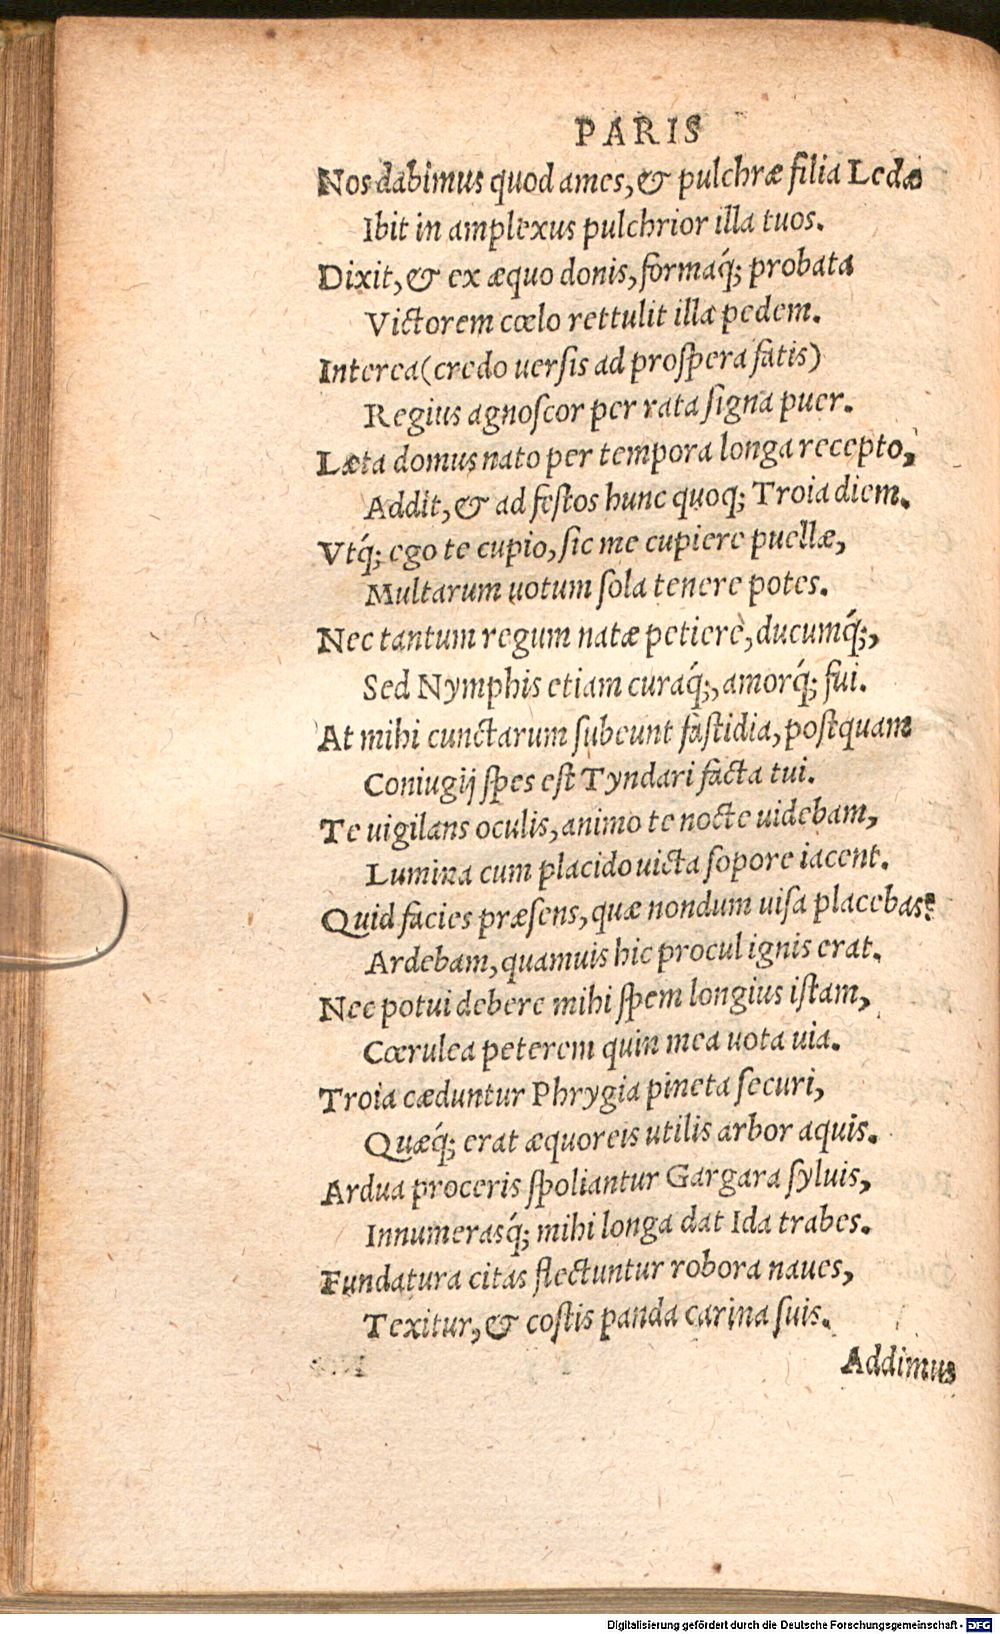 PARIS
Nos dabimus quod ames, & pulchræ filia Ledæ
Ibit in amplexus pulchrior illa tuos.
Dixit, & ex æquo donis, formaq́; probata
Victorem cœlo rettulit illa pedem.
Interea (credo uersis ad prospera fatis)
Regius agnoscor per rata signa puer.
Læta domus nato per tempora longa recepto,
Addit, & ad festos hunc quoq; Troia diem.
Vtq́; ego te cupio, sic me cupiere puellæ,
Multarum uotum sola tenere potes.
Nec tantum regum natæ petiere, ducumq́;,
Sed Nymphis etiam curaq́;, amorq́; fui.
At mihi cunctarum subeunt fastidia, postquam
Coniugij spes est Tyndari facta tui.
Te uigilans oculis, animo te nocte uidebam,
Lumina cum placido uicta sopore iacent.
Quid facies præsens, quæ nondum uisa placebas?
Ardebam, quamuis hic procul ignis erat.
Nec potui debere mihi spem longius istam,
Cœrulea peterem quin mea uota uia.
Troia cæduntur Phrygia pineta securi,
Quæq́; erat æquoreis utilis arbor aquis.
Ardua proceris spoliantur Gargara syluis,
Innumerasq́; mihi longa dat Ida trabes.
Fundatura citas flectuntur robora naues,
Texitur, & costis panda carina suis.
Addimus
Digitalisierung gefördert durch die Deutsche Forschungsgemeinschaft - DFG